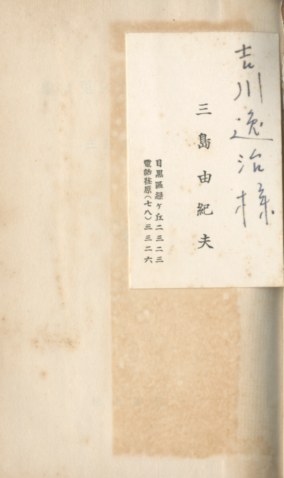 吉川逸治様
三島由紀夫
目黒区緑ヶ丘二三二三
電話荏原(78)三三二六